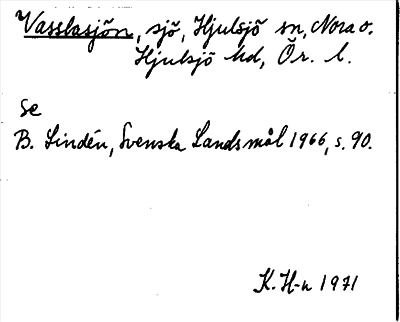 Vasslasjön, sjö, Hjulsjö sn, Nora o.
Hjulsjö hd, Ör. l.
se
B. Lindén, Svenska Landsmål 1966, s. 90.
K. H-n 1971